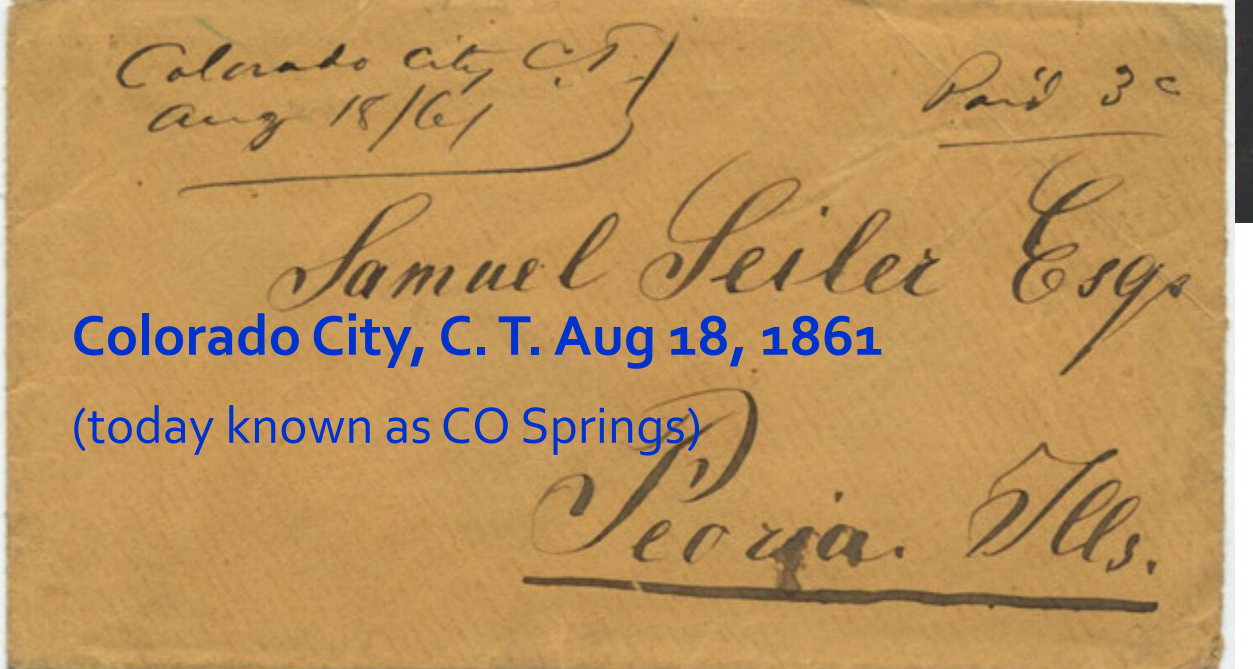 Colorado City, C.T.
Aug 18/61
Paid 3c
Samuel Seiler Esqr
Colorado City, C. T. Aug 18, 1861
(today known as CO Springs)
Peoria. Ills.